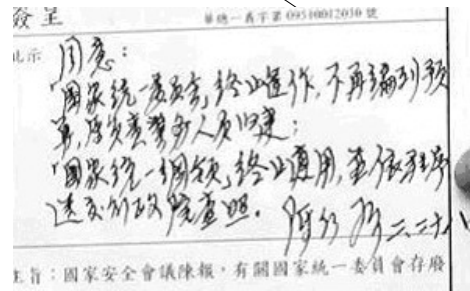 簽呈
華總一義字第09510012030號
批示
同意:
「國家統一委員會」終止運作,不再編列預
算,原負責業務人員歸建;
「國家統一綱領」終止適用,並依程序
送交行政院查照。
陳水扁 二.二十八
主旨:國家安全會議陳報,有關國家統一委員會存廢